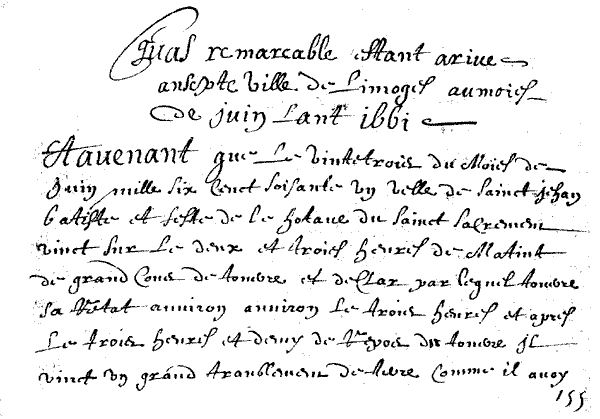 Quas remarcable estant arive
ansepte ville de Limoges au moies
de juin Lant 1661
Et avenant que Le vinte trois du Moies de
Juin mille six Cenct soisante un velle de sainct Jehan
batiste et feste de le hotave du sainct sacrement
vinct sur Le deux et trois heures de Matint
de grand Cous de tonere et de Clar par lequel tonere
sa restat anviron anviron Le trois heures et apres
Le trois heures et demy de du tonere jl
vinct un grand tranblement de terre Comme il avoy
155